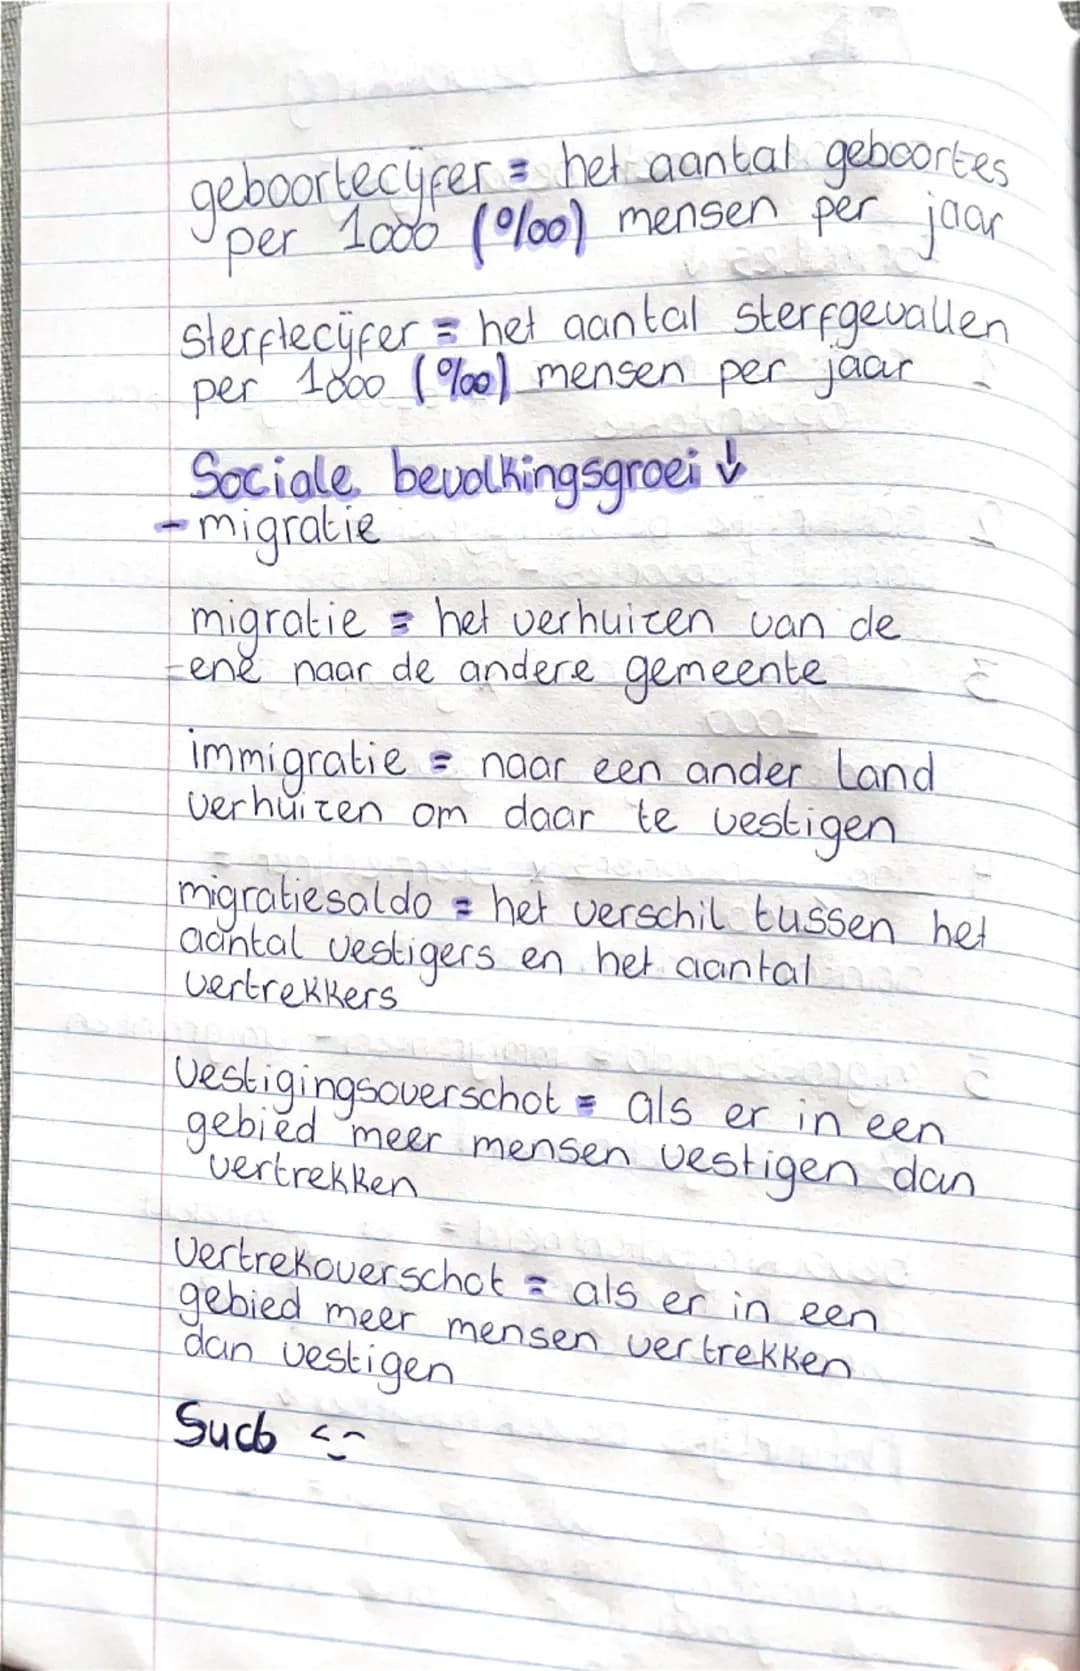 geboortecijfer = het aantal geboortes
per 1000 (‰) mensen per jaar
sterftecijfer = het aantal sterfgevallen
per 1000 (‰) mensen per jaar
Sociale bevolkingsgroei ↓
- migratie
migratie = het verhuizen van de
ene naar de andere gemeente
immigratie = naar een ander land
verhuizen om daar te vestigen
migratiesaldo = het verschil tussen het
aantal vestigers en het aantal
vertrekkers
Vestigingsoverschot = als er in een
gebied meer mensen vestigen dan
vertrekken
Vertrekoverschot = als er in een
gebied meer mensen vertrekken
dan vestigen